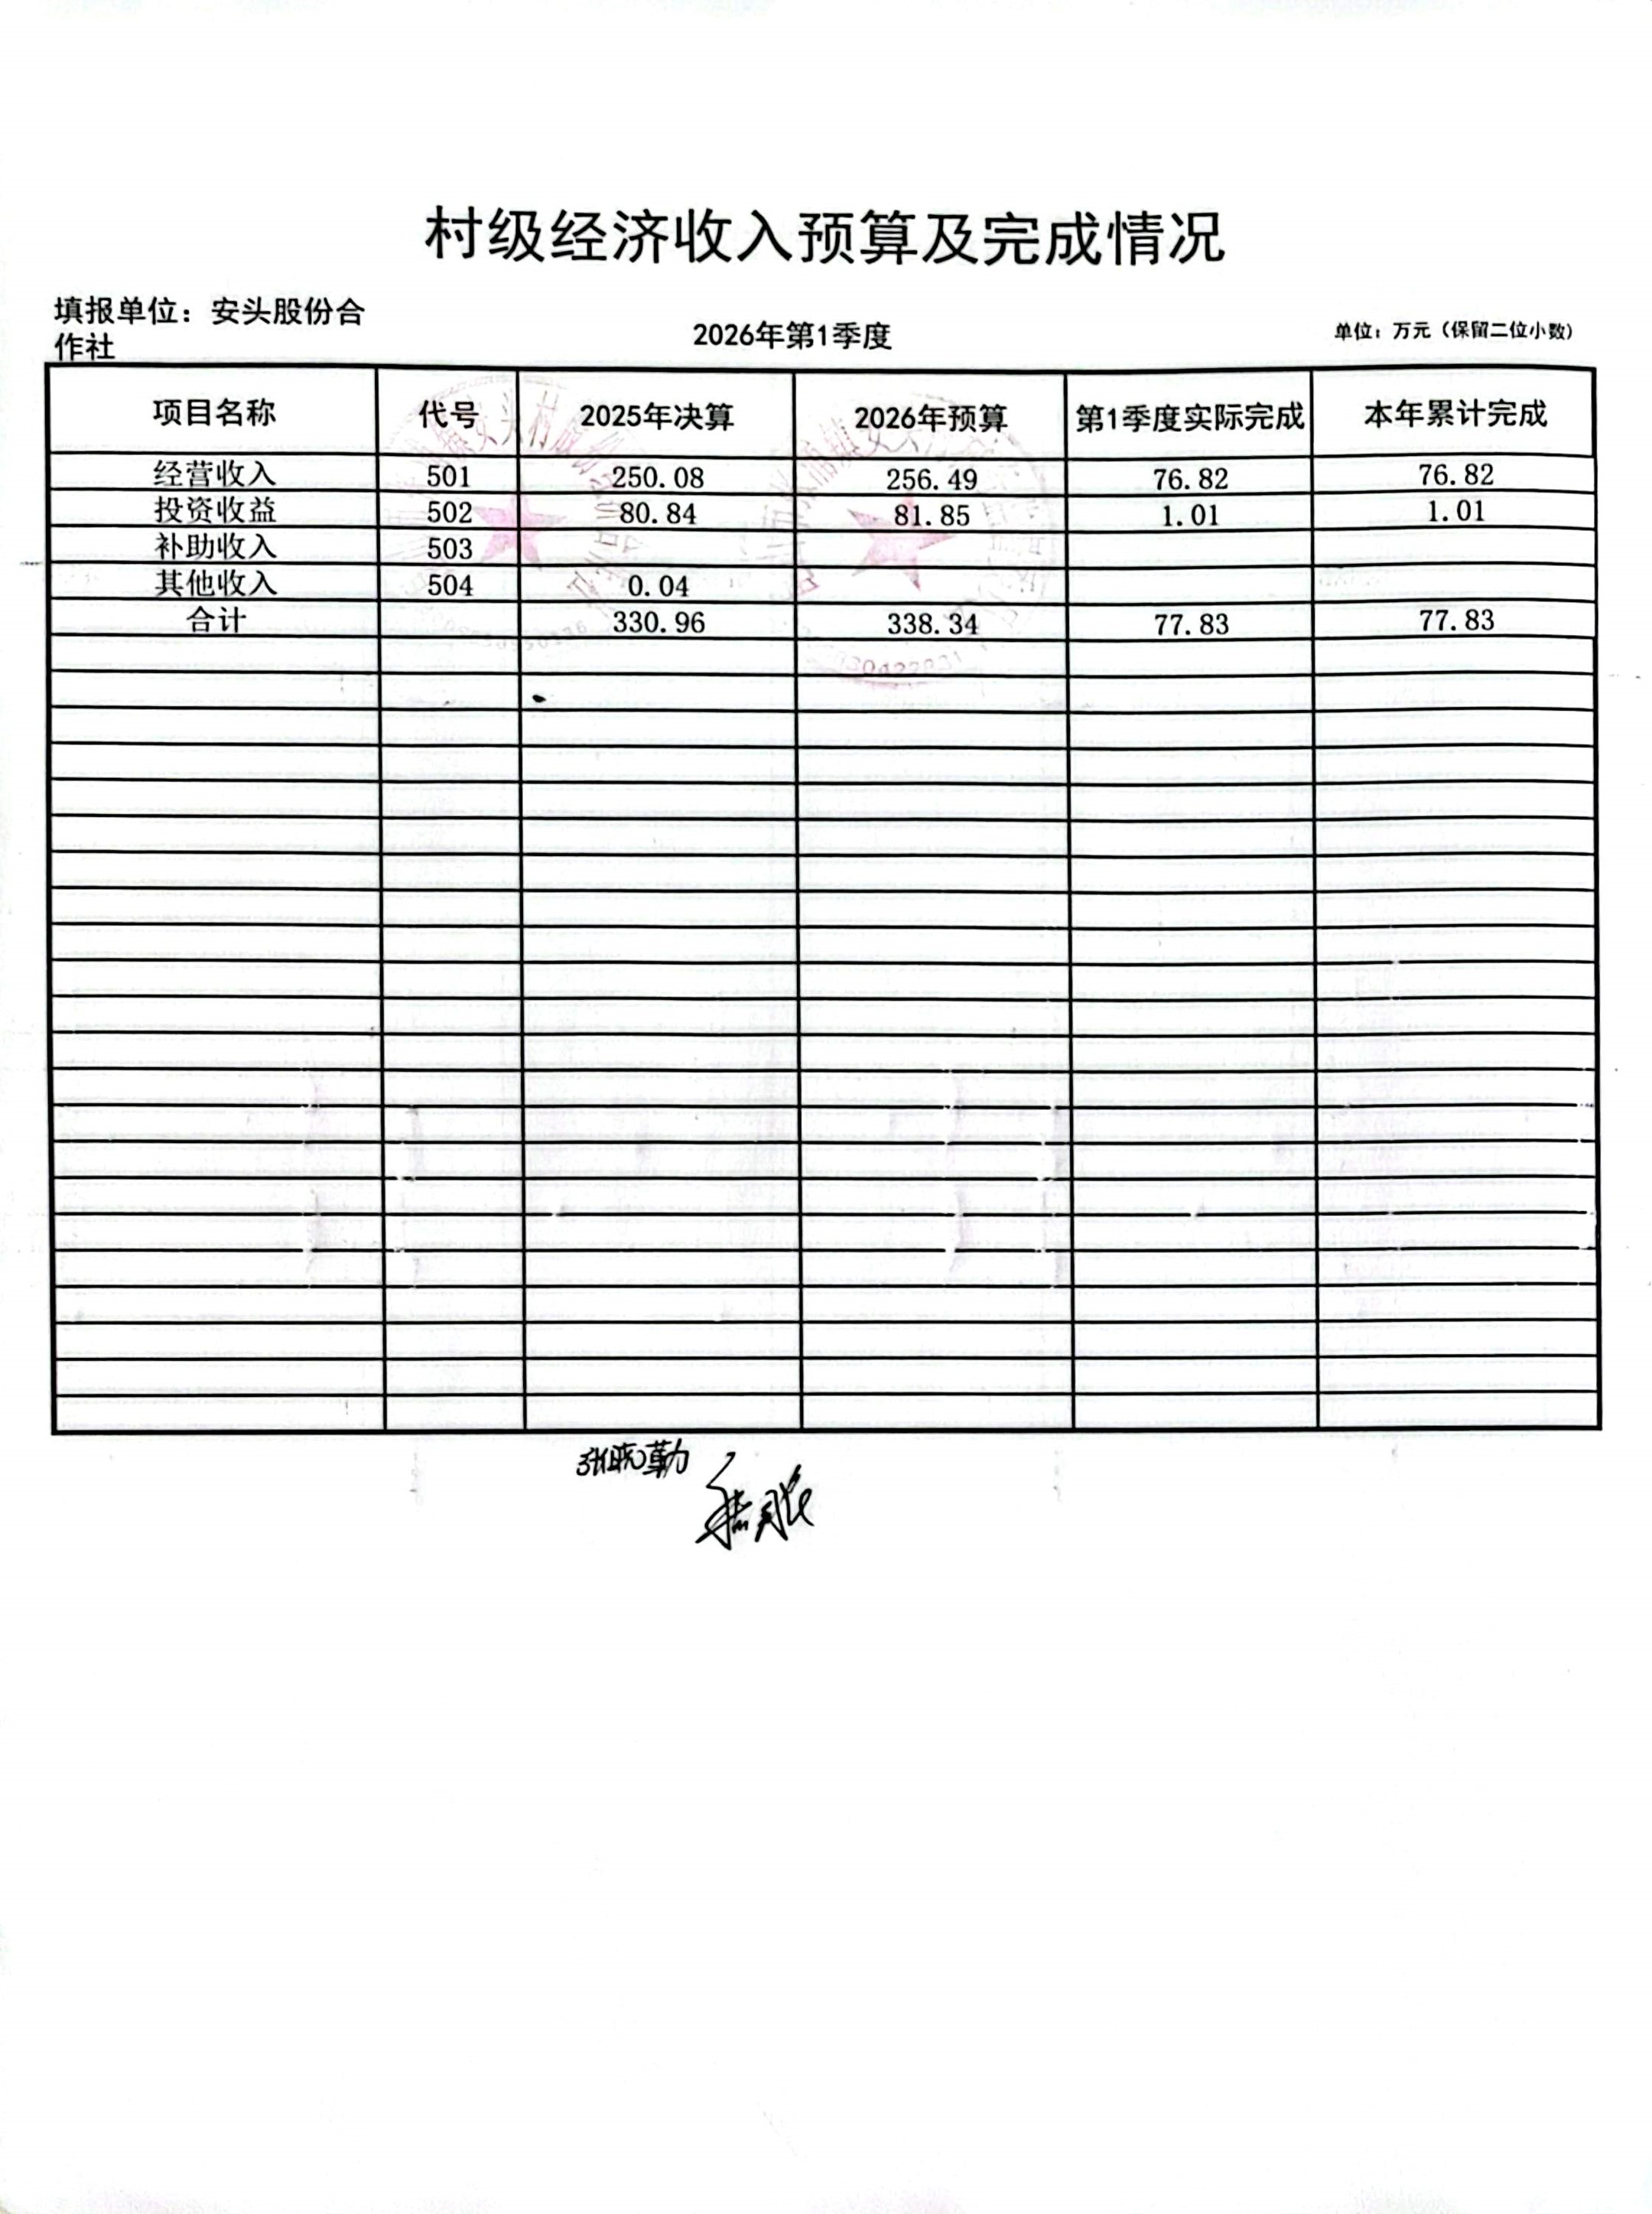 村级经济收入预算及完成情况
填报单位：安头股份合
作社
2026年第1季度
单位：万元（保留二位小数）
项目名称 代号 2025年决算 2026年预算 第1季度实际完成 本年累计完成
经营收入 501 250.08 256.49 76.82 76.82
投资收益 502 80.84 81.85 1.01 1.01
补助收入 503
其他收入 504 0.04
合计 330.96 338.34 77.83 77.83
张晓勤